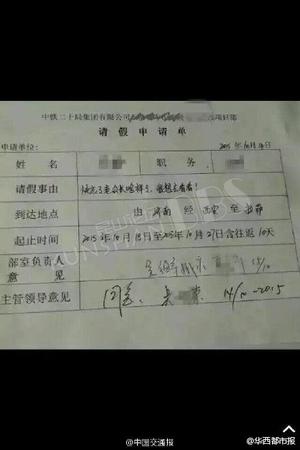 中铁二十局集团有限公司 项目部
请假申请单
申请单位: 2015年10月14日
姓名 职务
请假事由 快忘了老婆长啥样了,我想去看看!
到达地点 由 济南 经 西安 至
起止时间 2015年10月18日至2015年10月27日含往返10天
部室负责人
意见
主管领导意见 同意、 14/10-2015
@中国交通报
@华西都市报